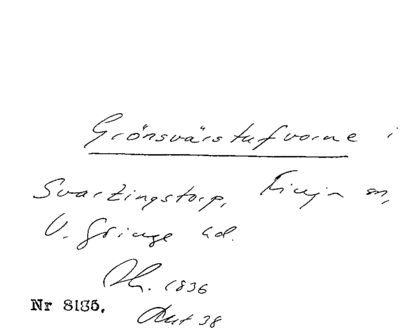 Grönsvärstufvorne i
Svartingstorp, Finja sn,
V. Göinge hd.
1836
Nr 8135.
Aut 38